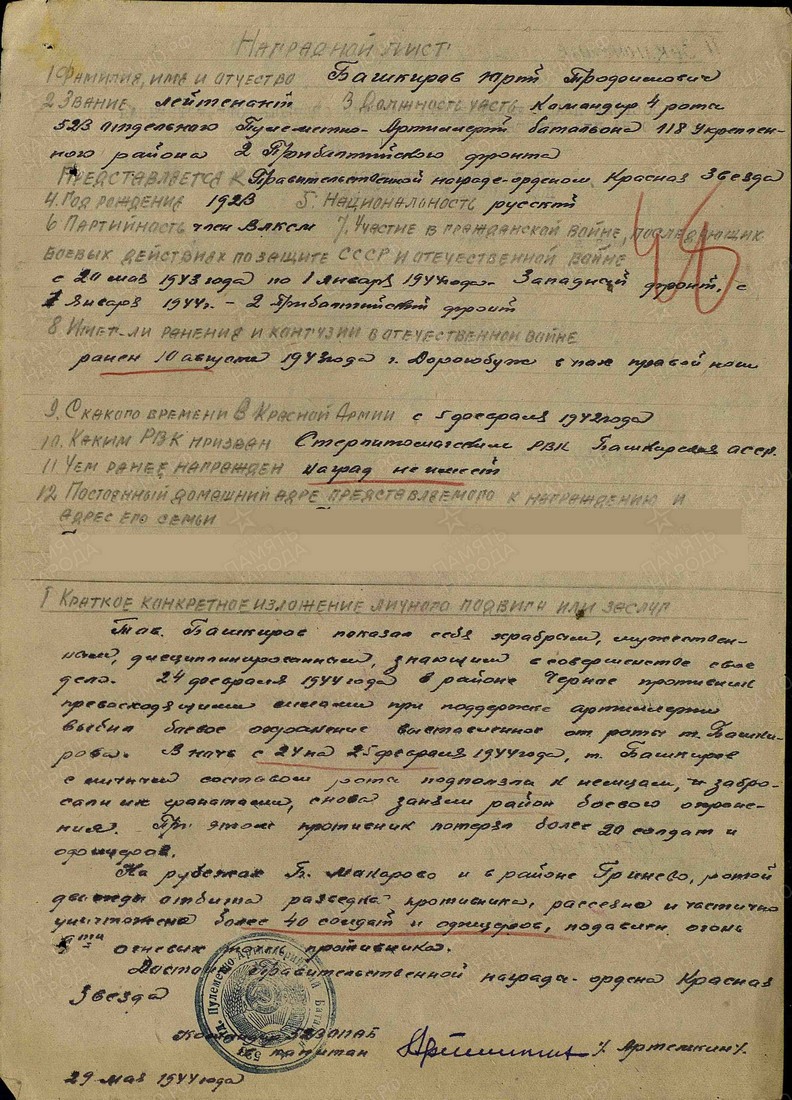 Наградной лист
1 Фамилия, имя и отчество Башкиров Юрий Трофимович
2 Звание лейтенант 3 Должность часть Командир 4 роты
523 отдельного Пулеметно-Артиллерий батальона 118 Укреплен-
ного района 2 Прибалтийского фронта
Представляется к Правительственной награде-орденом Красная Звезда
4. Год рождения 1923 5. Национальность русский
6 Партийность член ВЛКСМ 7. Участие в гражданской войне, последующих
боевых действиях по защите СССР и отечественной войне
с 20 мая 1943 года по 1 января 1944 года. Западный фронт, с
1 января 1944 г. - 2 Прибалтийский фронт
8. Имеет-ли ранения и контузии в отечественной войне
ранен 10 августа 1943 года г. Дорогобуж в пах правой ноги
9. С какого времени в Красной Армии с 5 февраля 1942 года
10. Каким РВК призван Стерлитомагским РВК Башкирская АССР.
11 Чем ранее награжден наград не имеет
12 Постоянный домашний адре представляемого к награждению и
адрес его семьи
I Краткое конкретное изложение личного подвига или заслуг
Тов. Башкиров показал себя храбрым, мужествен-
ным, дисциплинированным, знающим в совершенстве свое
дело. 24 февраля 1944 года в районе Черное противник
превосходящими силами при поддержке артиллерии
выбил боевое охранение выставленное от роты т. Башки-
рова. В ночь с 24 на 25 февраля 1944 года, т. Башкиров
с личным составом роты подползли к немцам, и забро-
сали их гранатами, снова заняли район боевого охране-
ния. При этом противник потерял более 20 солдат и
офицеров.
На рубежах Б. Макарово и в районе Гринево, ротой
дважды отбита разведка противника, рассеяно и частично
уничтожено более 40 солдат и офицеров, подавлен огонь
огневых точек противника.
Достоин Правительственной награды-ордена Красная
Звезда
Командир 523 ОПАБ
капитан /Артемкин/.
29 мая 1944 года